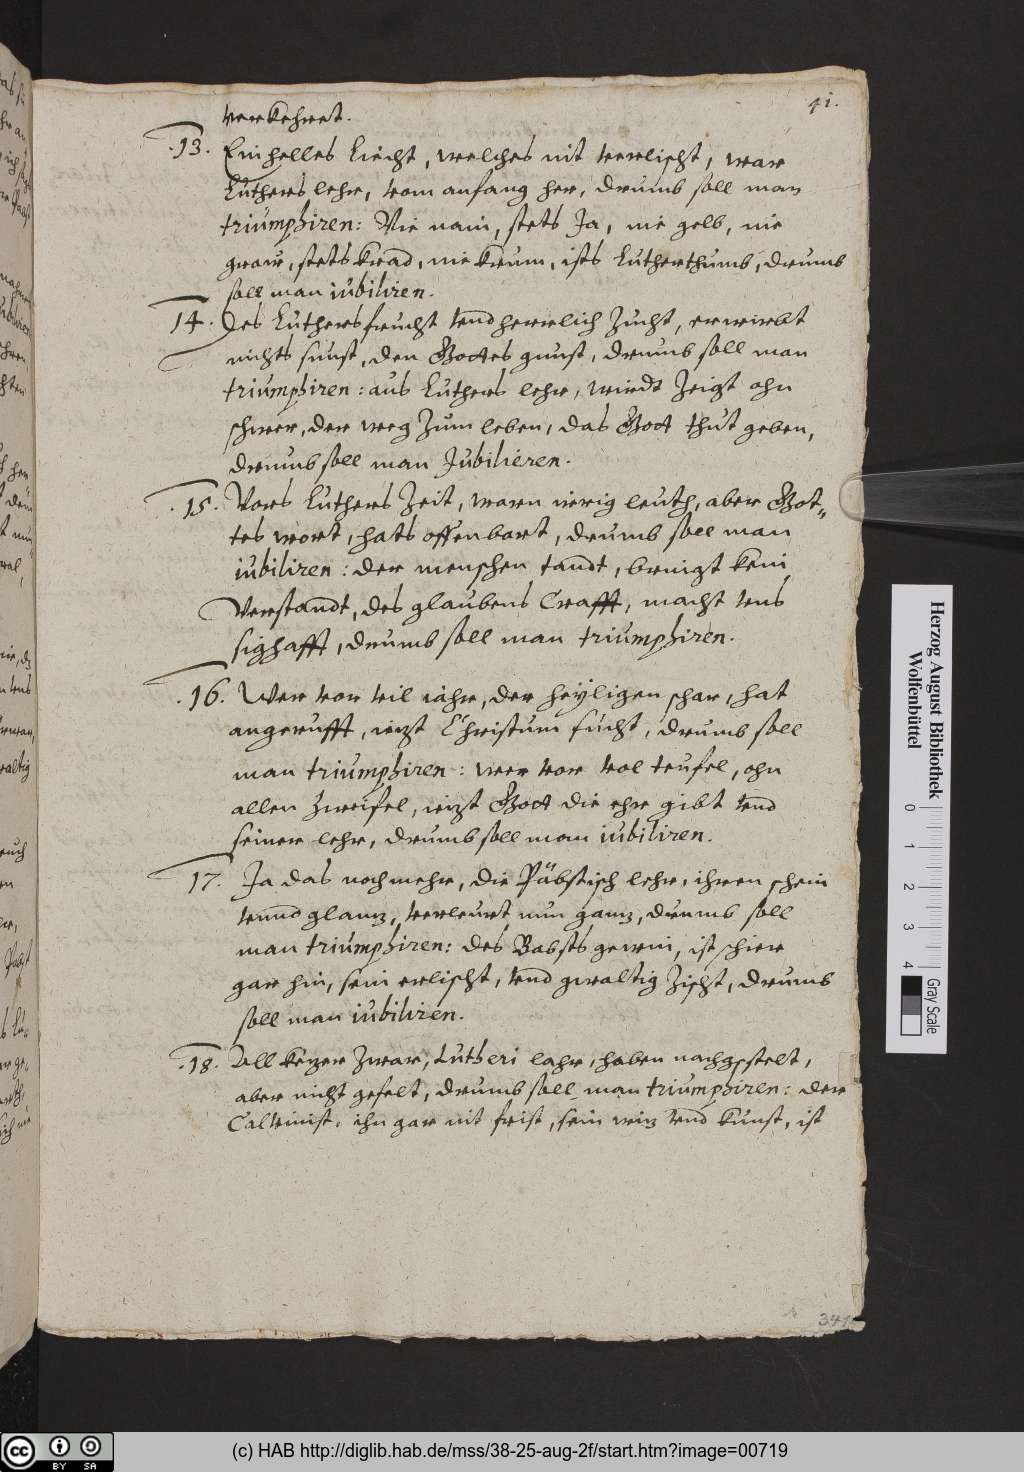 41.
verkehret.
.13. Ein helles Liecht, welches nit verlischt, war
Luthers lehr, vom anfang her, drumb soll man
triumphiren: Nie nain, stets Ja, nie gelb, nie
graw, stets krad, nie krum, ists Lutherthumb, drumb
soll man iubiliren.
14. Des Luthers frucht vnd herrlich Zucht, erwirbt
nichts sunst, den Gottes gunst, drumb soll man
triumphiren: aus Luthers lehr, wirdt Zeigt ohn
schwer, der weg Zum leben, das Gott thut geben,
drumb soll man Jubilieren.
.15. Vors Luthers Zeit, warn irrig leuth, aber Got-
tes wort, hats offenbart, drumb soll man
iubiliren: der menschen tandt, bringt kein
Verstandt, des glaubens Crafft, macht vns
sighafft, drumb soll man triumphiren.
.16. Wer vor vil iahr, der heyligen schar, hat
angerufft, iezt Christum sucht, drumb soll
man triumphiren: wer vor vol teufel, ohn
allen Zweifel, iezt Gott die ehr gibt vnd
seiner lehr, drumb soll man iubiliren.
17. Ja das noch mehr, die Päbstisch lehr, ihren schein
vnnd glanz, verleurt nun ganz, drumb soll
man triumphiren: des Babsts gewin, ist schier
gar hin, sein erlischt, vnd gwaltig Zischt, drumb
soll man iubiliren.
.18. All kezer Zwar, Lutheri lahr, haben nachgstelt,
aber nicht gefelt, drumb soll man triumphiren: der
Calvinist, ihn gar nit frist, sein wiz vnd kunst, ist
341
Herzog August Bibliothek
Wolfenbüttel
0 1 2 3 4
Gray Scale
cc BY SA
(c) HAB http://diglib.hab.de/mss/38-25-aug-2f/start.htm?image=00719